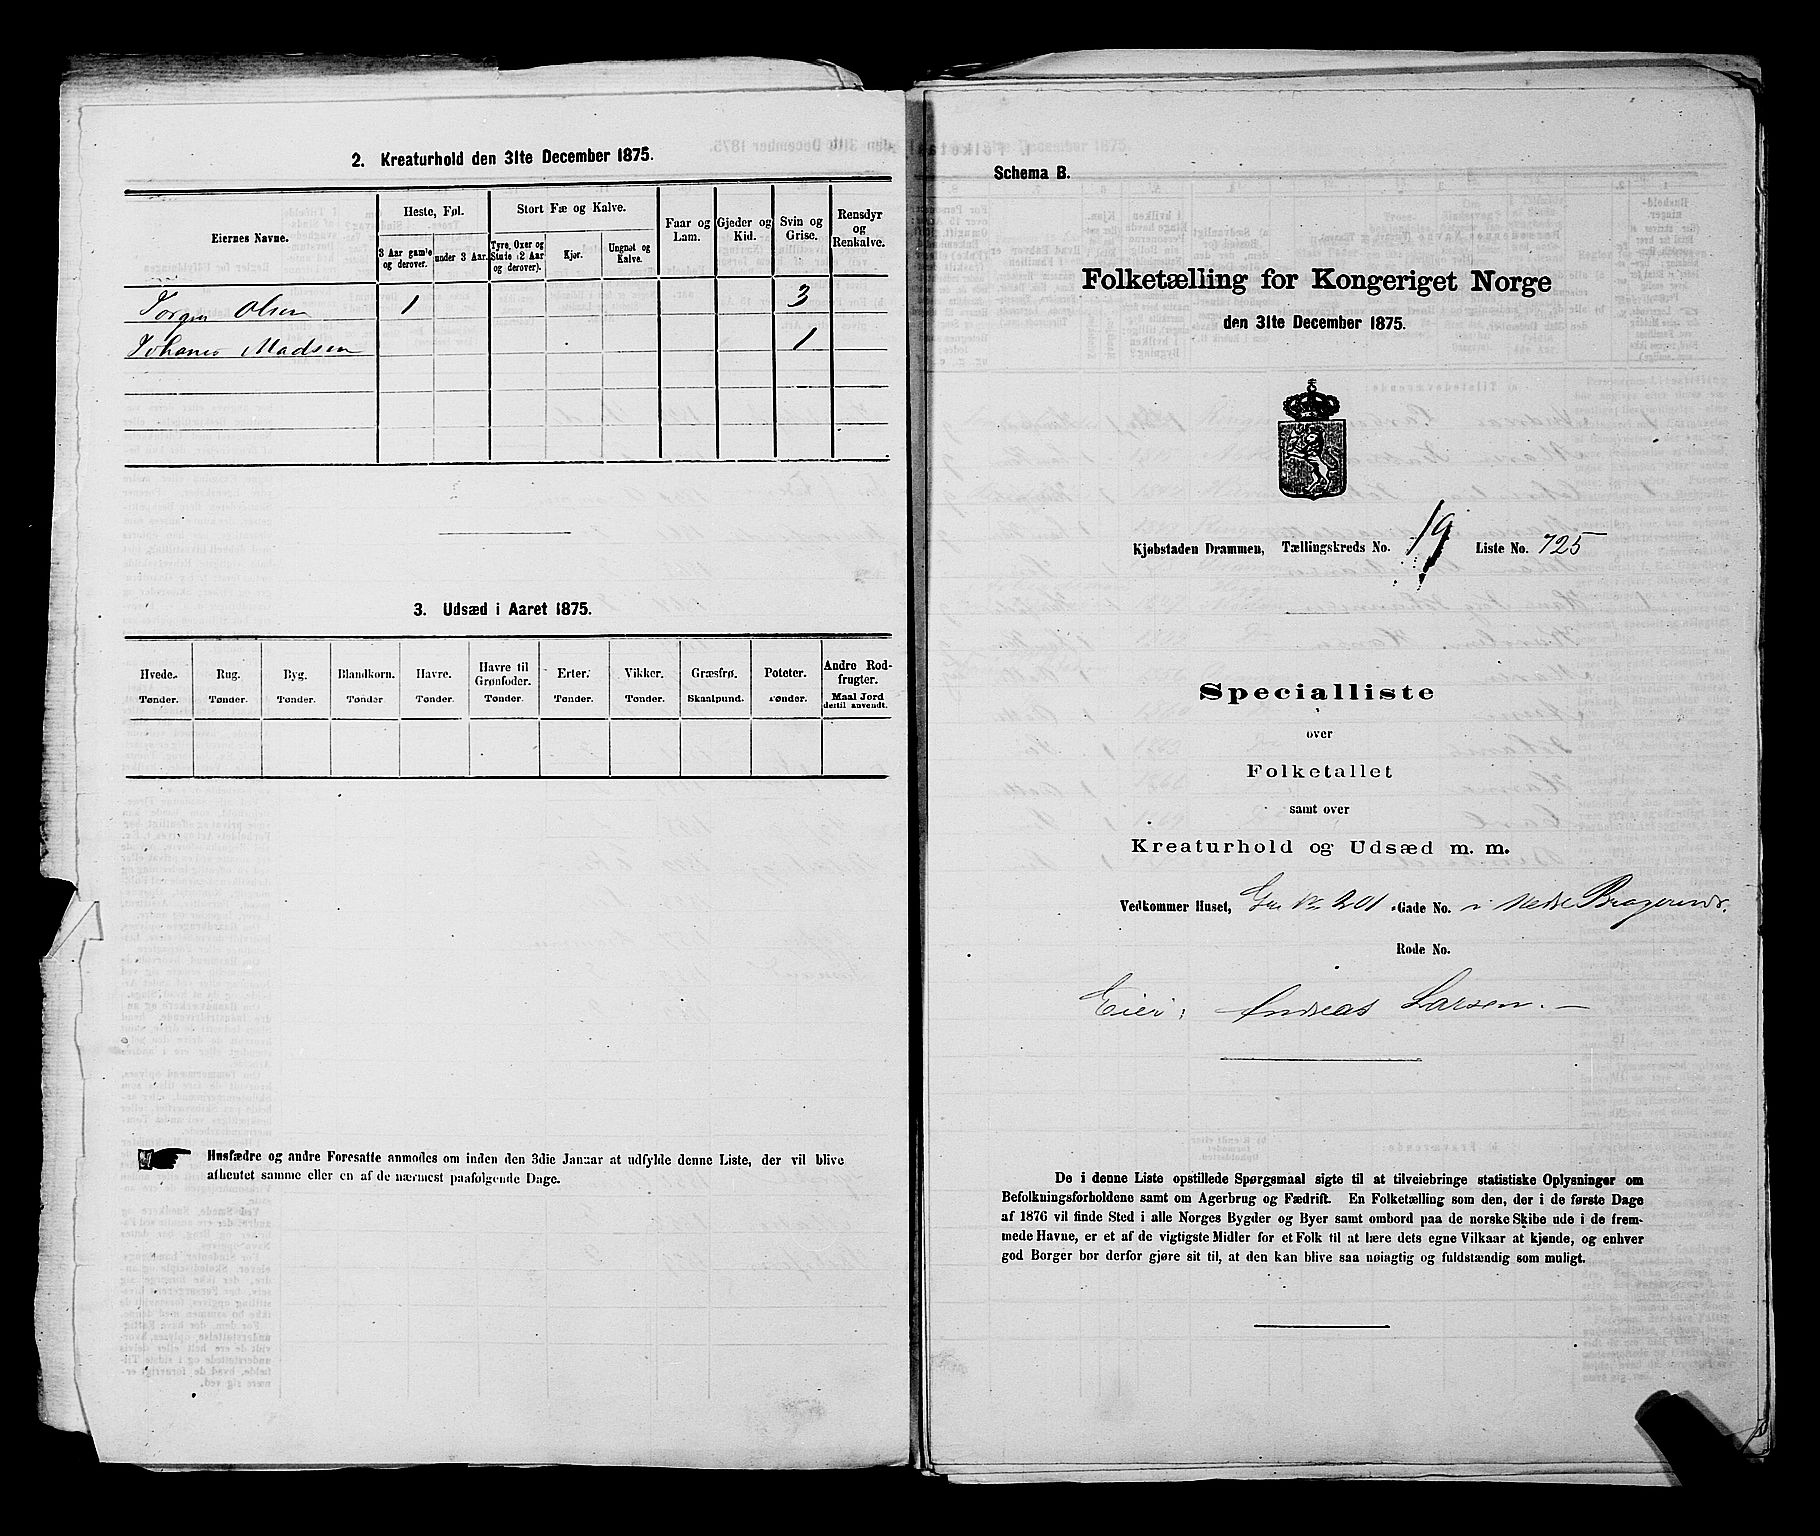 2. Kreaturhold den 31te December 1875.
Eiernes Navne.
Heste, Føl.
3 Aar gamle og derover.
under 3 Aar.
Stort Fæ og Kalve.
Tyre, Oxer og Stude (2 Aar og derover).
Kjør.
Ungnøt og Kalve.
Faar og Lam.
Gjeder og Kid.
Svin og Grise.
Rensdyr og Renkalve.
Jørgen Olsen 1 3
Johanes Madsen 1
3. Udsæd i Aaret 1875.
Hvede. Rug. Byg. Blandkorn. Havre. Havre til Grønfoder. Erter. Vikker. Græsfrø. Poteter. Andre Rodfrugter.
Tønder. Tønder. Tønder. Tønder. Tønder. Tønder. Tønder. Tønder. Skaalpund. Tønder. Maal Jord dertil anvendt.
Husfædre og andre Foresatte anmodes om inden den 3die Januar at udfylde denne Liste, der vil blive
afhentet samme eller en af de nærmest paafølgende Dage.
Schema B.
Folketælling for Kongeriget Norge
den 31te December 1875.
Kjøbstaden Drammen, Tællingskreds No. 19 Liste No. 725
Specialliste
over
Folketallet
samt over
Kreaturhold og Udsæd m. m.
Vedkommer Huset, 201 Gade No. i Nedre Bragernes.
Rode No.
Eier: Andreas Larsen.
De i denne Liste opstillede Spørgsmaal sigte til at tilveiebringe statistiske Oplysninger om
Befolkningsforholdene samt om Agerbrug og Fædrift. En Folketælling som den, der i de første Dage
af 1876 vil finde Sted i alle Norges Bygder og Byer samt ombord paa de norske Skibe ude i de frem-
mede Havne, er et af de vigtigste Midler for et Folk til at lære dets egne Vilkaar at kjende, og enhver
god Borger bør derfor gjøre sit til, at den kan blive saa nøiagtig og fuldstændig som muligt.